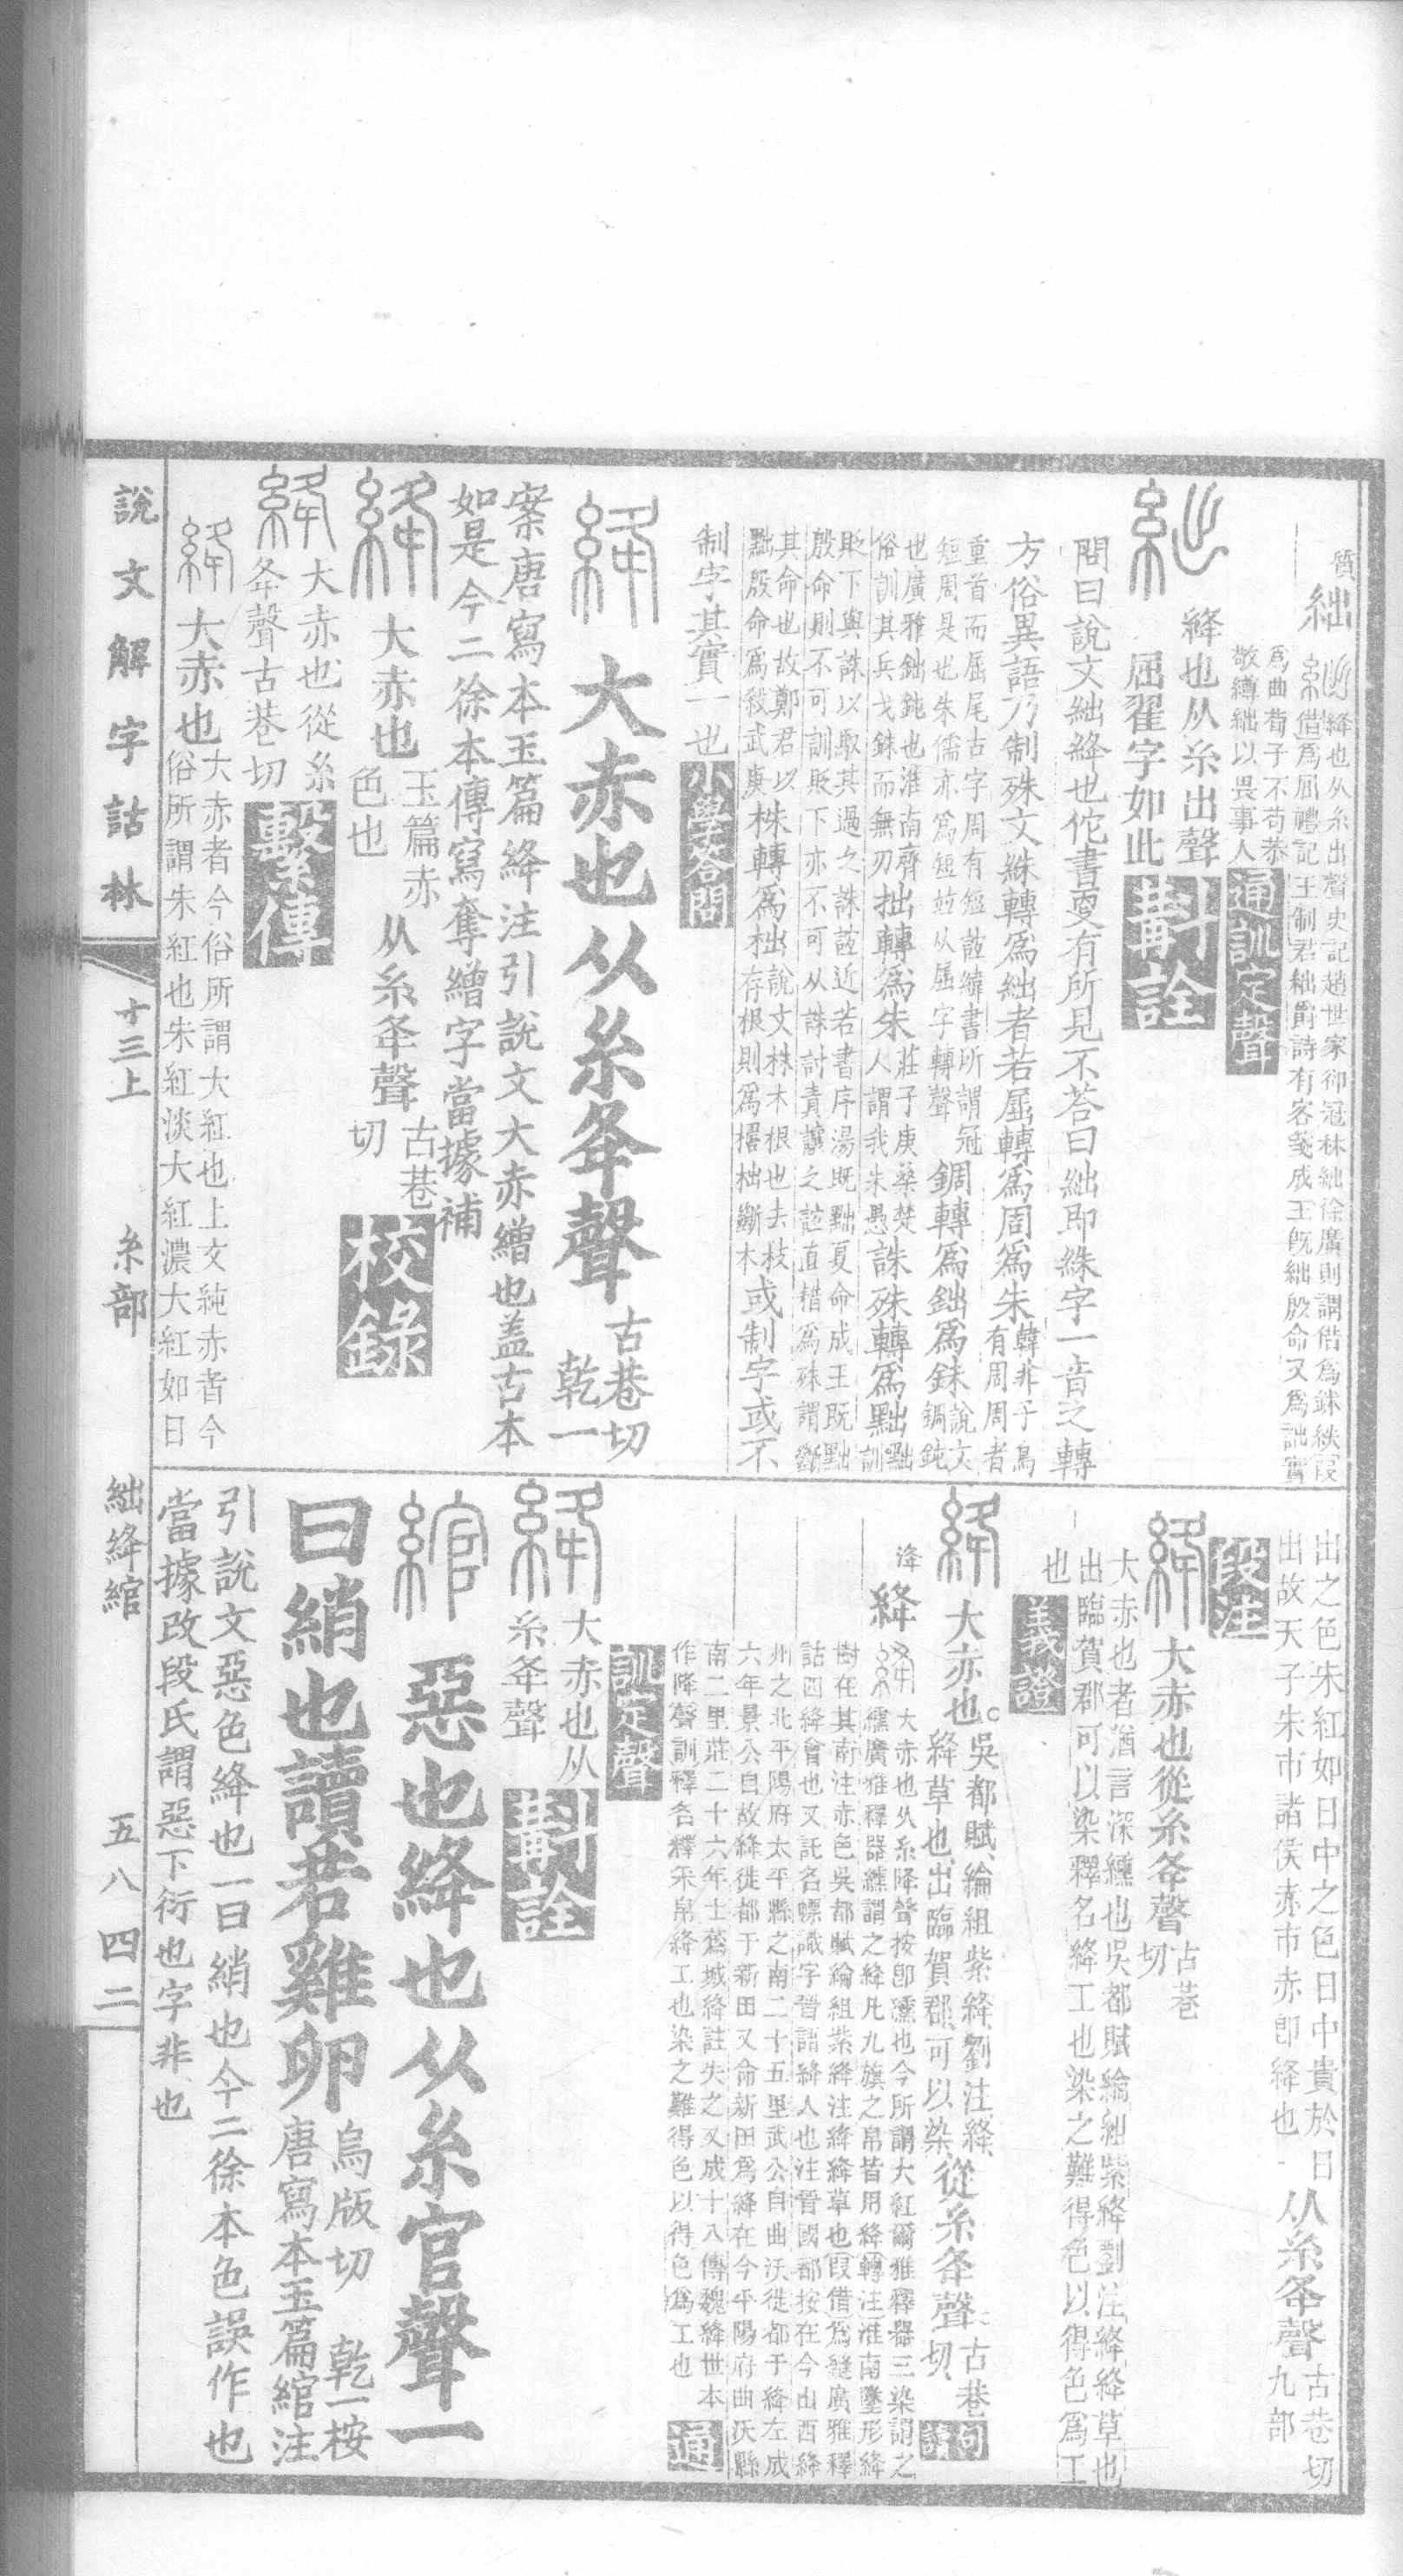 質
絀
絳也从糸出聲史記趙世家卻冠秫絀徐廣則謂借爲鉥紩叚
借爲屈禮記王制君絀爵詩有客箋成王旣絀殷命又爲詘實
爲曲荀子不苟恭
敬縛絀以畏事人
通訓定聲
絳也从糸出聲
屈翟字如此
斠詮
問曰說文絀絳也佗書更有所見不荅曰絀卽絑字一音之轉
方俗異語乃制殊文絑轉爲絀者若屈轉爲周爲朱
韓非子鳥
有周周者
重首而屈尾古字周有短誼緯書所謂冠
短周是也朱儒亦爲短竝从屈字轉聲
錭轉爲鈯爲銖
說文
錭鈍
也廣雅鈯鈍也淮南齊
俗訓其兵戈銖而無刃
拙轉爲朱
莊子庚桑楚
人謂我朱愚
誅殊轉爲黜
黜
訓
貶下與誅以馭其過之誅誼近若書序湯旣黜夏命成王旣黜
殷命則不可訓貶下亦不可从誅討責讓之誼直借爲殊謂斷
其命也故鄭君以
黜殷命爲殺武庚
株轉爲柮
說文株木根也去枝
存根則爲榾柮斷木
或制字或不
制字其實一也
小學荅問
大赤也从糸夅聲
古巷切
乾一
案唐寫本玉篇絳注引說文大赤繒也盖古本
如是今二徐本傳寫奪繒字當據補
大赤也
玉篇赤
色也
从糸夅聲
古巷
切
校錄
大赤也從糸
夅聲古巷切
繫傳
大赤也
大赤者今俗所謂大紅也上文純赤者今
俗所謂朱紅也朱紅淡大紅濃大紅如日
出之色朱紅如日中之色日中貴於日
出故天子朱巿諸侯赤巿赤卽絳也
从糸夅聲
古巷切
九部
段注
大赤也從糸夅聲
古巷
切
大赤也者酒言深纁也吳都賦綸組紫絳劉注絳絳草也
出臨賀郡可以染釋名絳工也染之難得色以得色爲工
也
義證
大赤也
吳都賦綸組紫絳劉注絳
絳草也出臨賀郡可以染
從糸夅聲
古巷
切
句讀
洚
絳
大赤也从糸降聲按卽纁也今所謂大紅爾雅釋器三染謂之
纁廣雅釋器纁謂之絳凡九旗之帛皆用絳轉注淮南墬形絳
樹在其南注赤色吳都賦綸組紫絳注絳絳草也叚借爲縫廣雅釋
詁四絳會也又託名幖識字晉語絳人也注晉國都按在今山西絳
州之北平陽府太平縣之南二十五里武公自曲沃徙都于絳左成
六年景公自故絳徙都于新田又命新田爲絳在今平陽府曲沃縣
南二里莊二十六年士蒍城絳註失之又成十八傳魏絳世本
作降聲訓釋名釋采帛絳工也染之難得色以得色爲工也
通
訓定聲
大赤也从
糸夅聲
斠詮
惡也絳也从糸官聲一
曰綃也讀若雞卵
烏版切 乾一按
唐寫本玉篇綰注
引說文惡色絳也一曰綃也今二徐本色誤作也
當據改段氏謂惡下衍也字非也
說文解字詁林
十三上
糸部
絀絳綰
五八四二